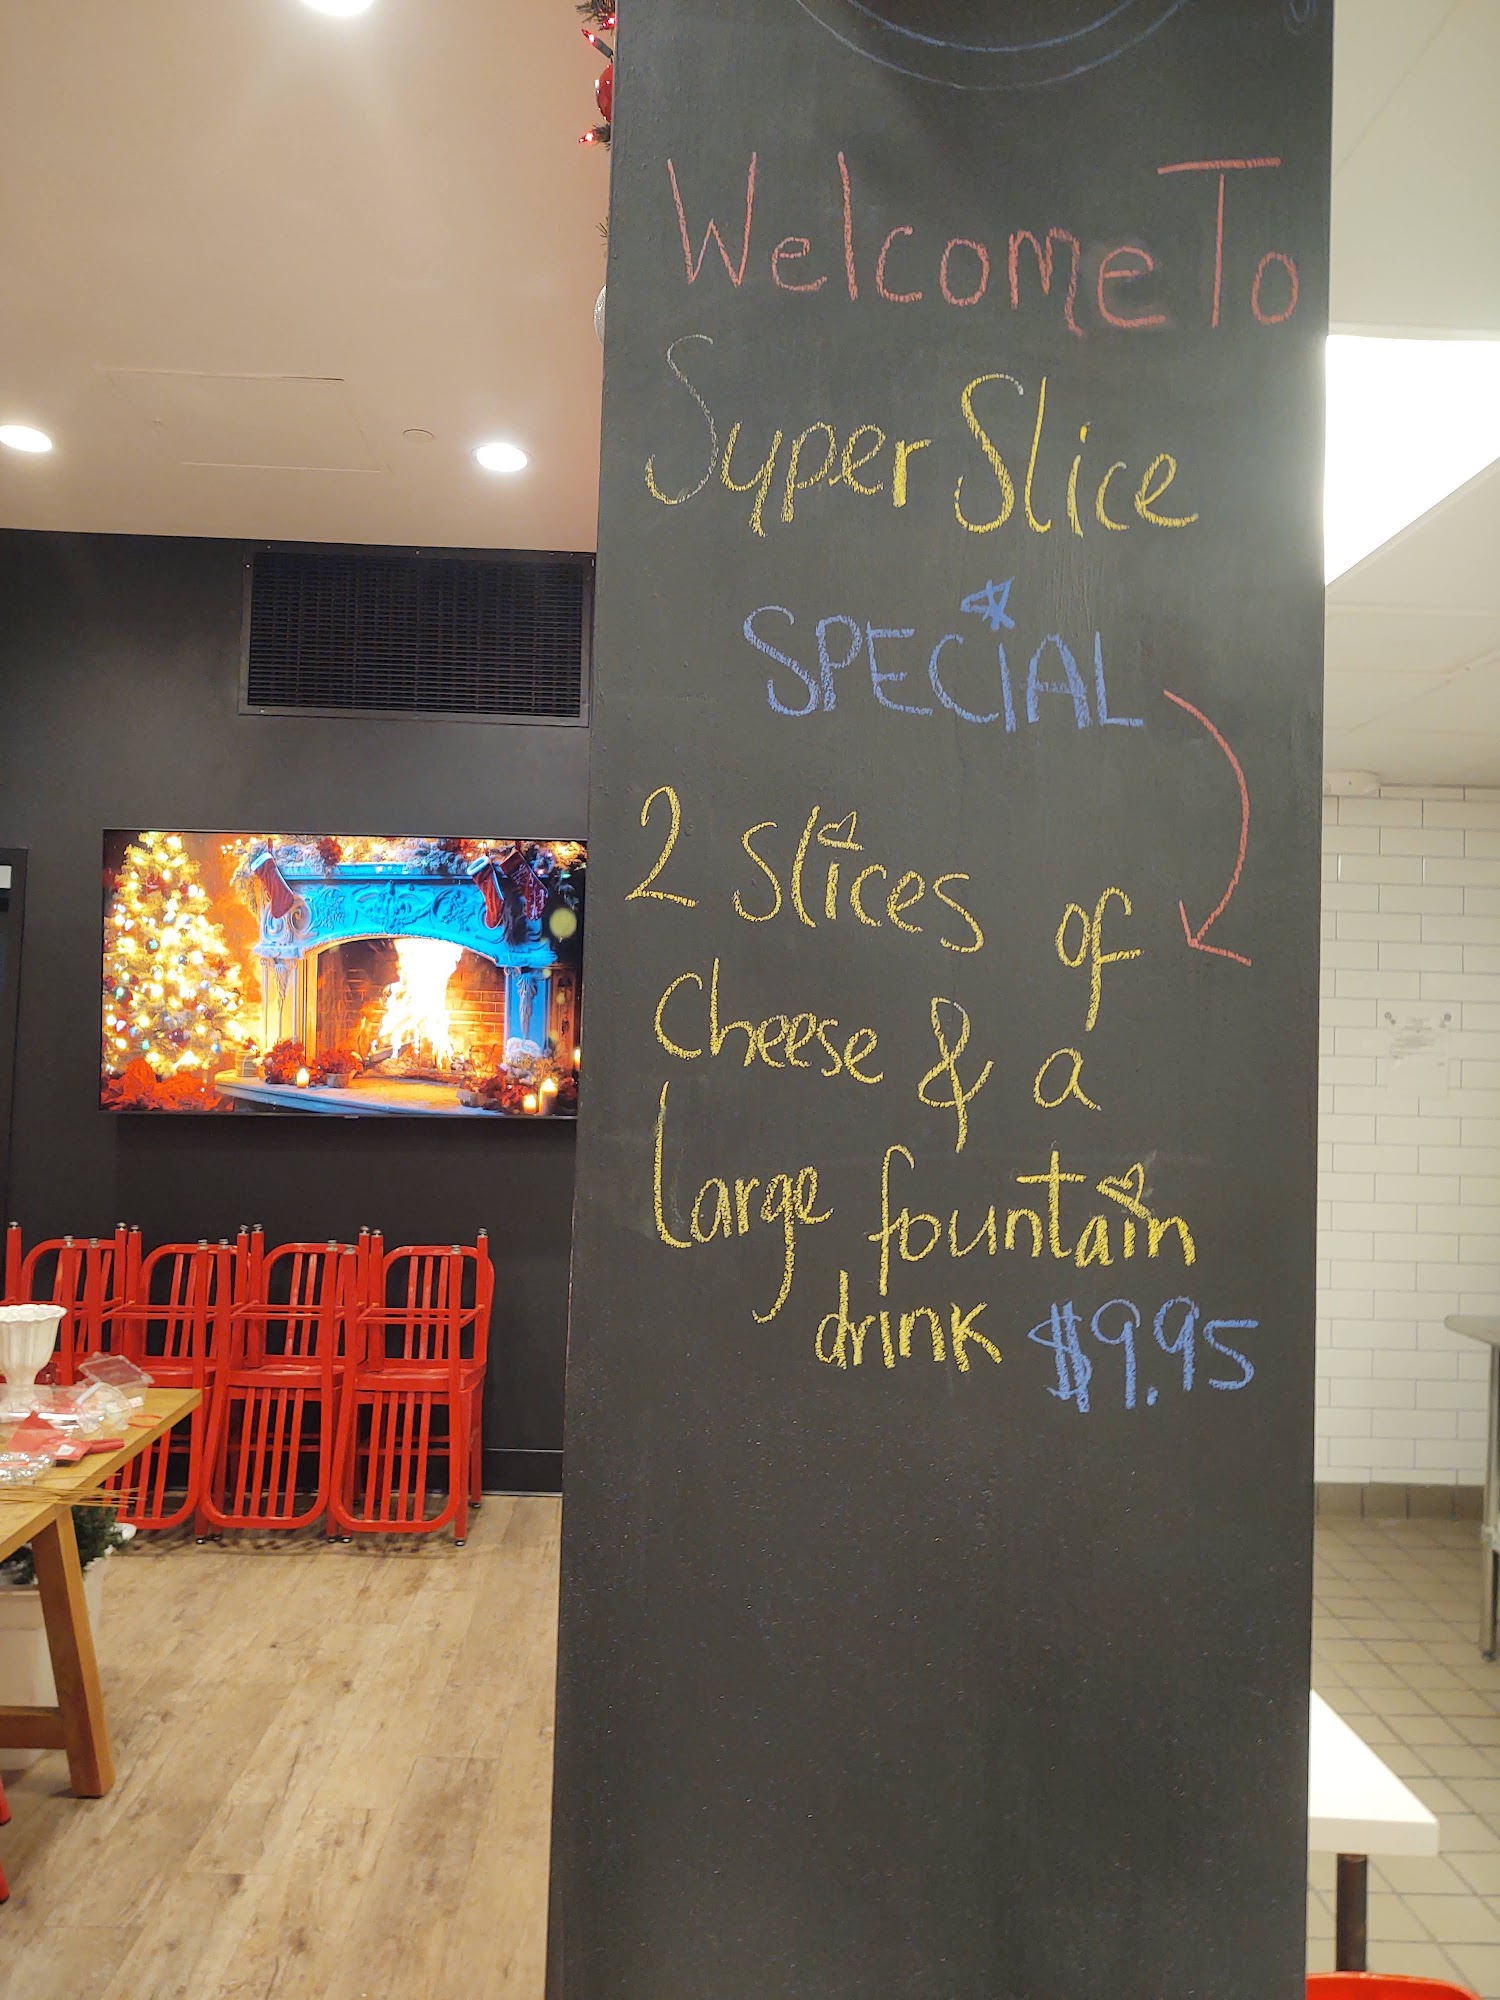 Welcome To
Super Slice
SPECiAL
2 slices of
cheese & a
large fountain
drink $9.95